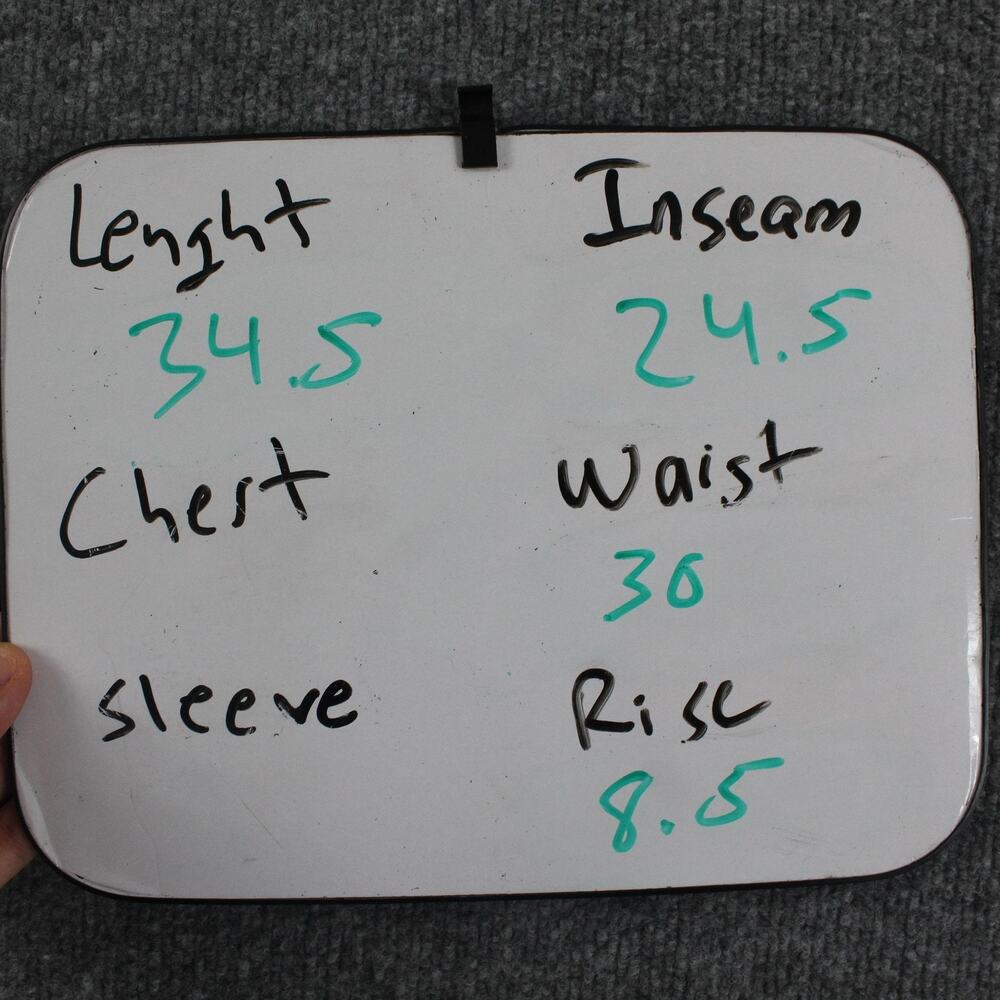 Lenght
34.5
Chest
sleeve
Inseam
24.5
Waist
30
Rise
8.5